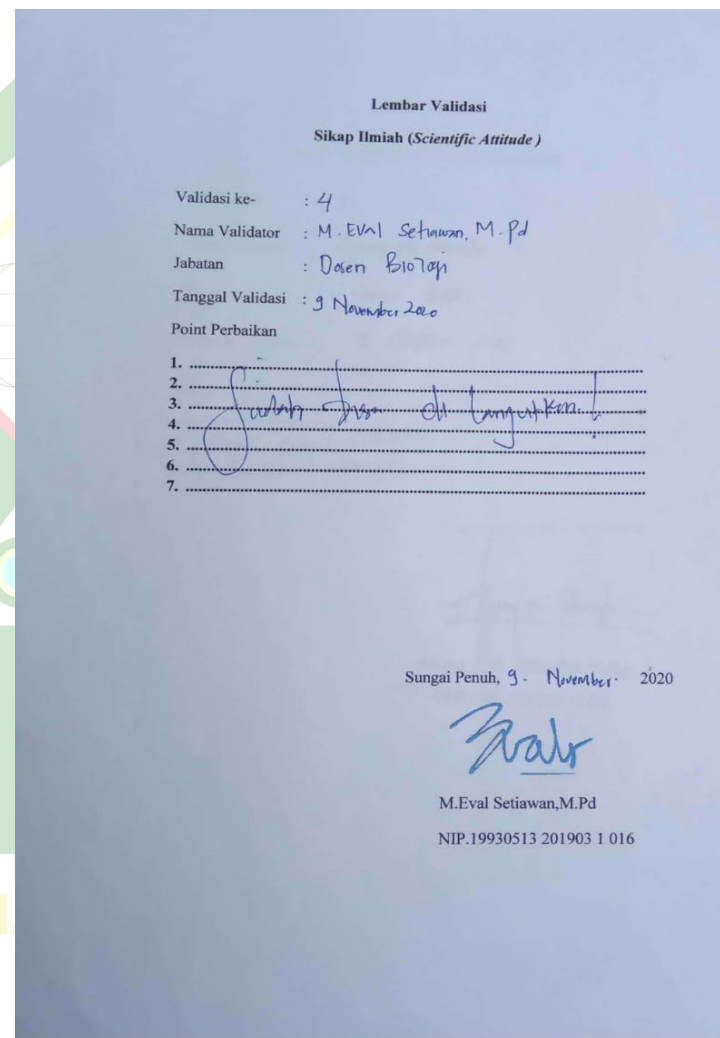 Lembar Validasi
Sikap Ilmiah (Scientific Attitude )
Validasi ke- : 4
Nama Validator : M. Eval Setiawan, M.Pd
Jabatan : Dosen Biologi
Tanggal Validasi : 9 November 2020
Point Perbaikan
1. ....................
2. ....................
3. .................... Sudah bisa di lanjutkan !
4. ....................
5. ....................
6. ....................
7. ....................
Sungai Penuh, 9. November. 2020
M.Eval Setiawan,M.Pd
NIP.19930513 201903 1 016